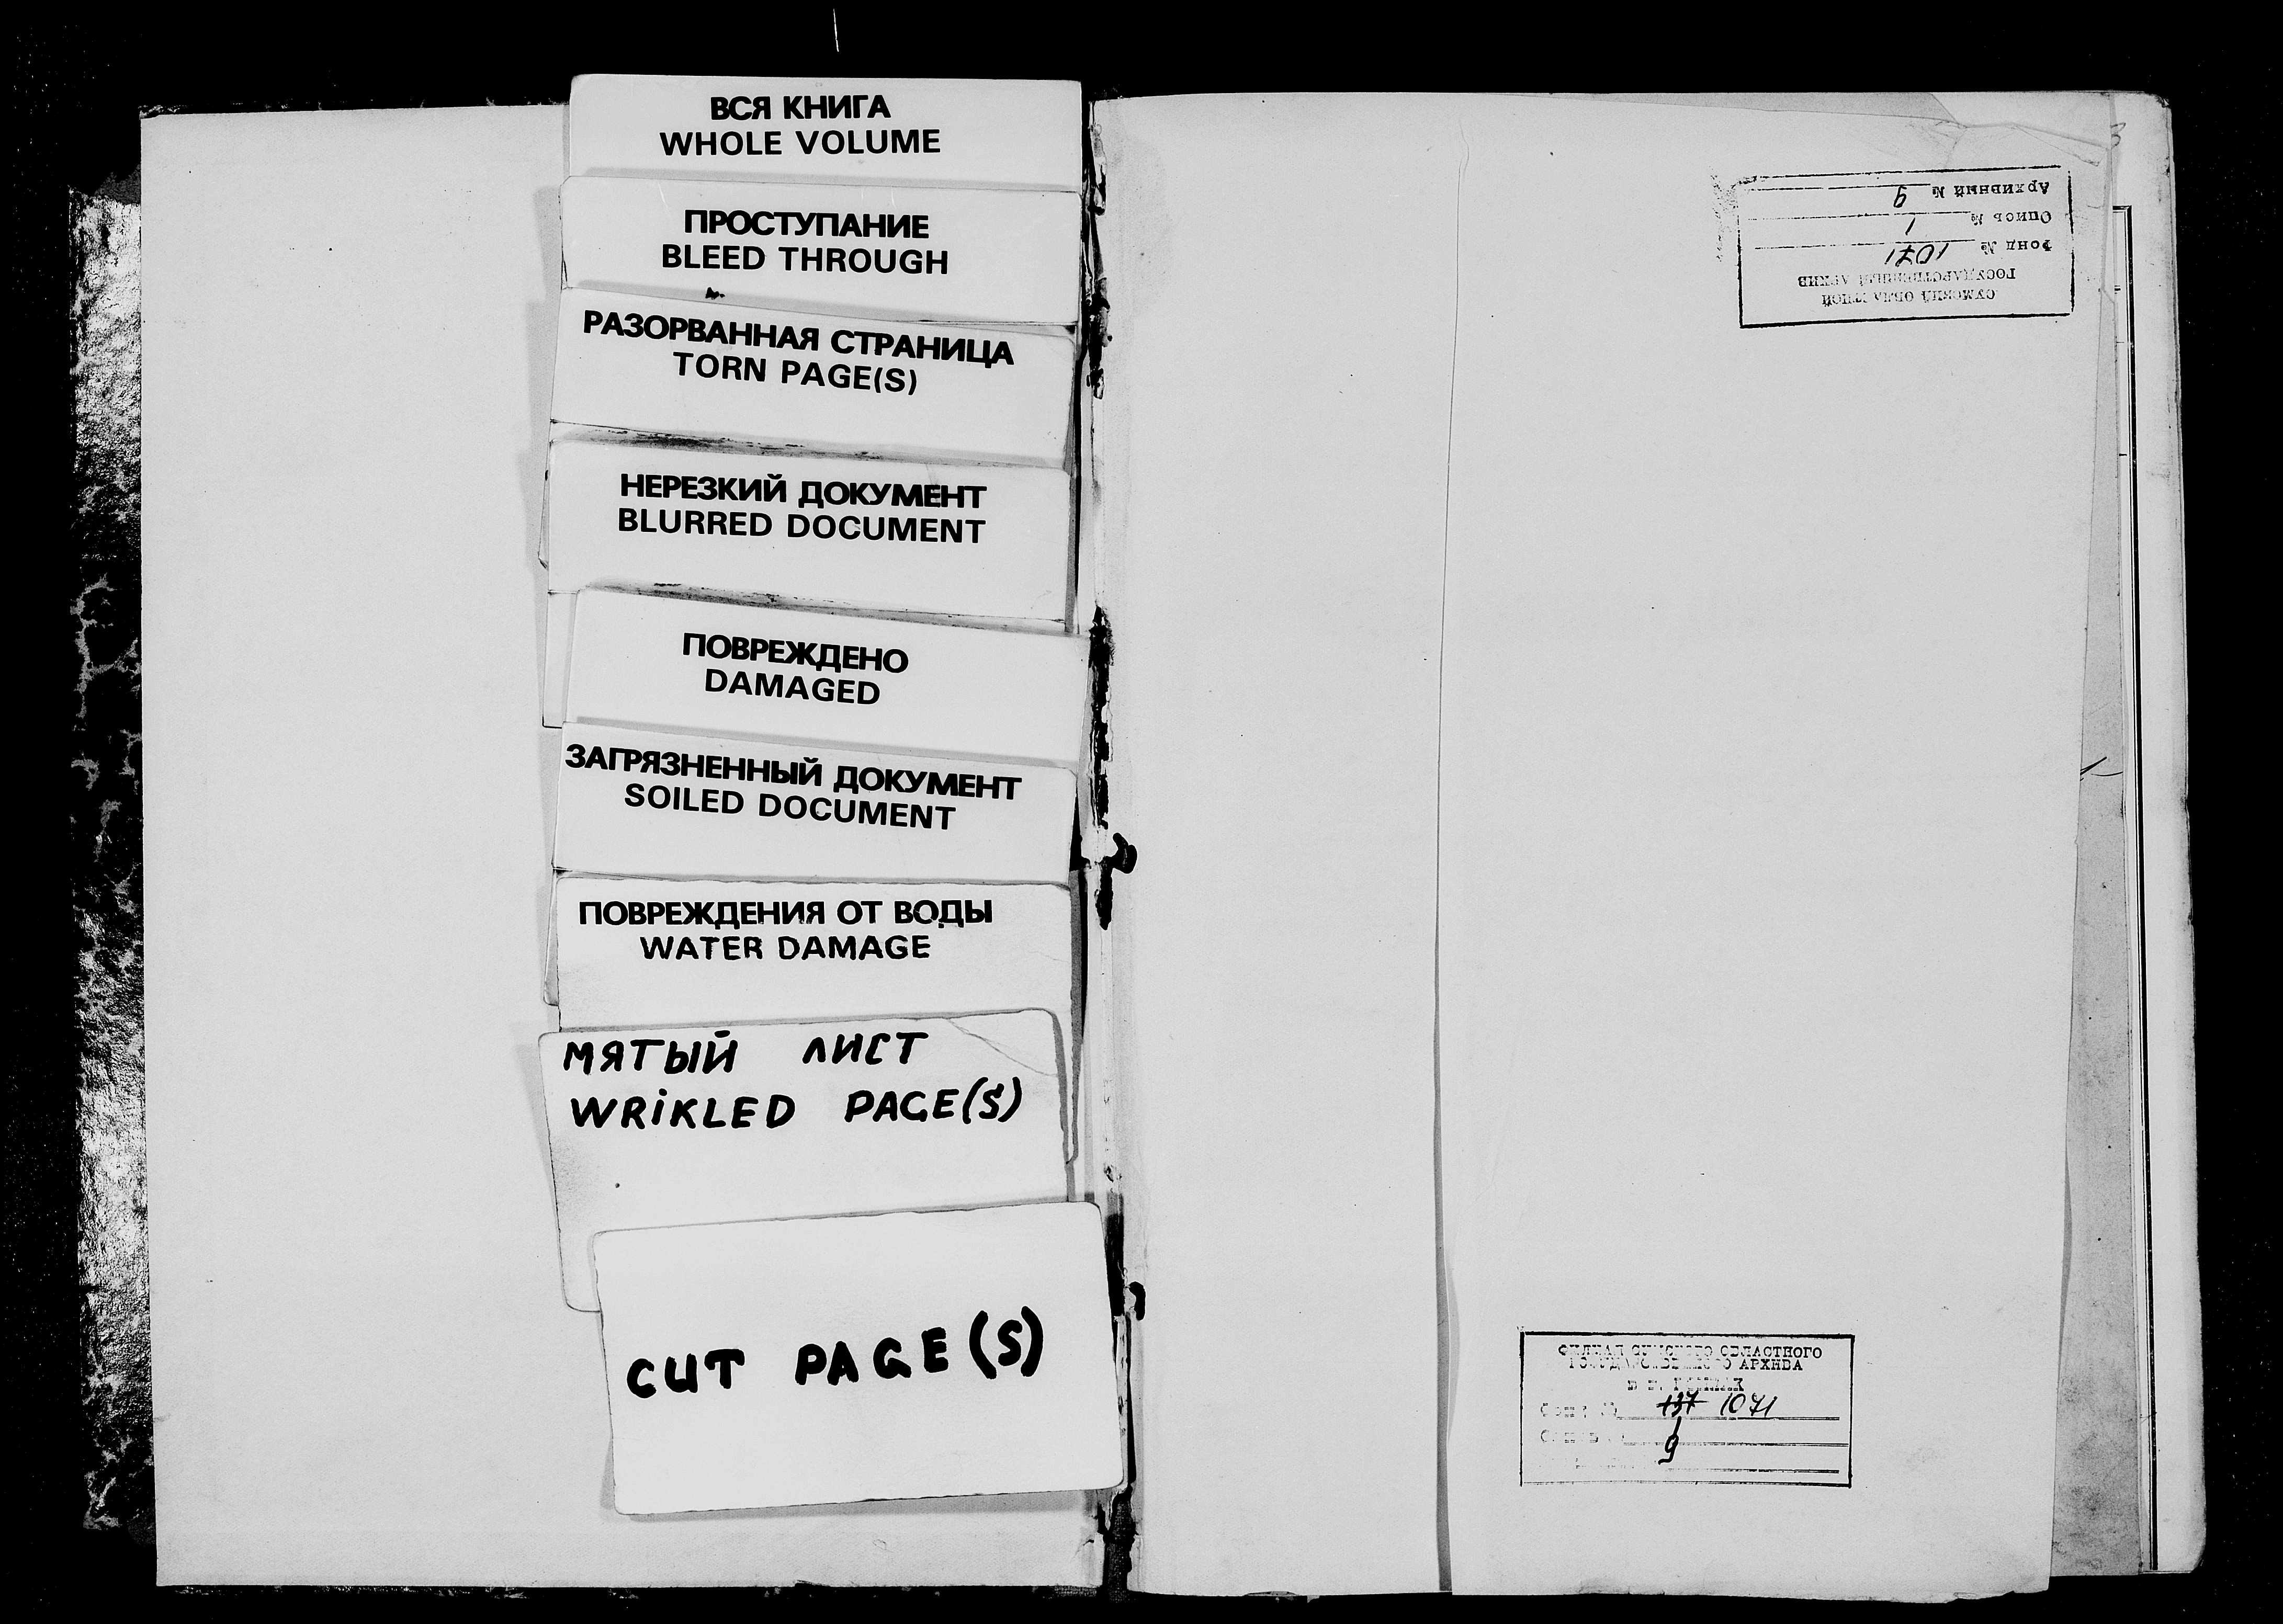 ВСЯ КНИГА
WHOLE VOLUME
ПРОСТУПАНИЕ
BLEED THROUGH
РАЗОРВАННАЯ СТРАНИЦА
TORN PAGE(S)
НЕРЕЗКИЙ ДОКУМЕНТ
BLURRED DOCUMENT
ПОВРЕЖДЕНО
DAMAGED
ЗАГРЯЗНЕННЫЙ ДОКУМЕНТ
SOILED DOCUMENT
ПОВРЕЖДЕНИЯ ОТ ВОДЫ
WATER DAMAGE
МЯТЫЙ ЛИСТ
WRiKLED PAGE(S)
CUT PAGE(S)
СУМСКИЙ ОБЛАСТНОЙ
ГОСУДАРСТВЕННЫЙ АРХИВ
Фонд № 1071
Опись № 1
Архивный № 9
ФИЛИАЛ СУМСКОГО ОБЛАСТНОГО
ГОСУДАРСТВЕННОГО АРХИВА
137 1071
1
9